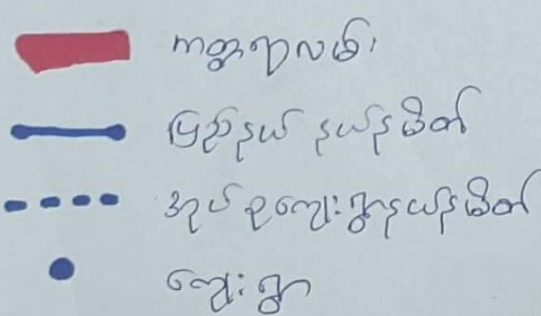 ကတ္တရာလမ်း
ပြည်နယ် နယ်နမိတ်
အုပ်စုကျေးရွာနယ်နမိတ်
ကျေးရွာ